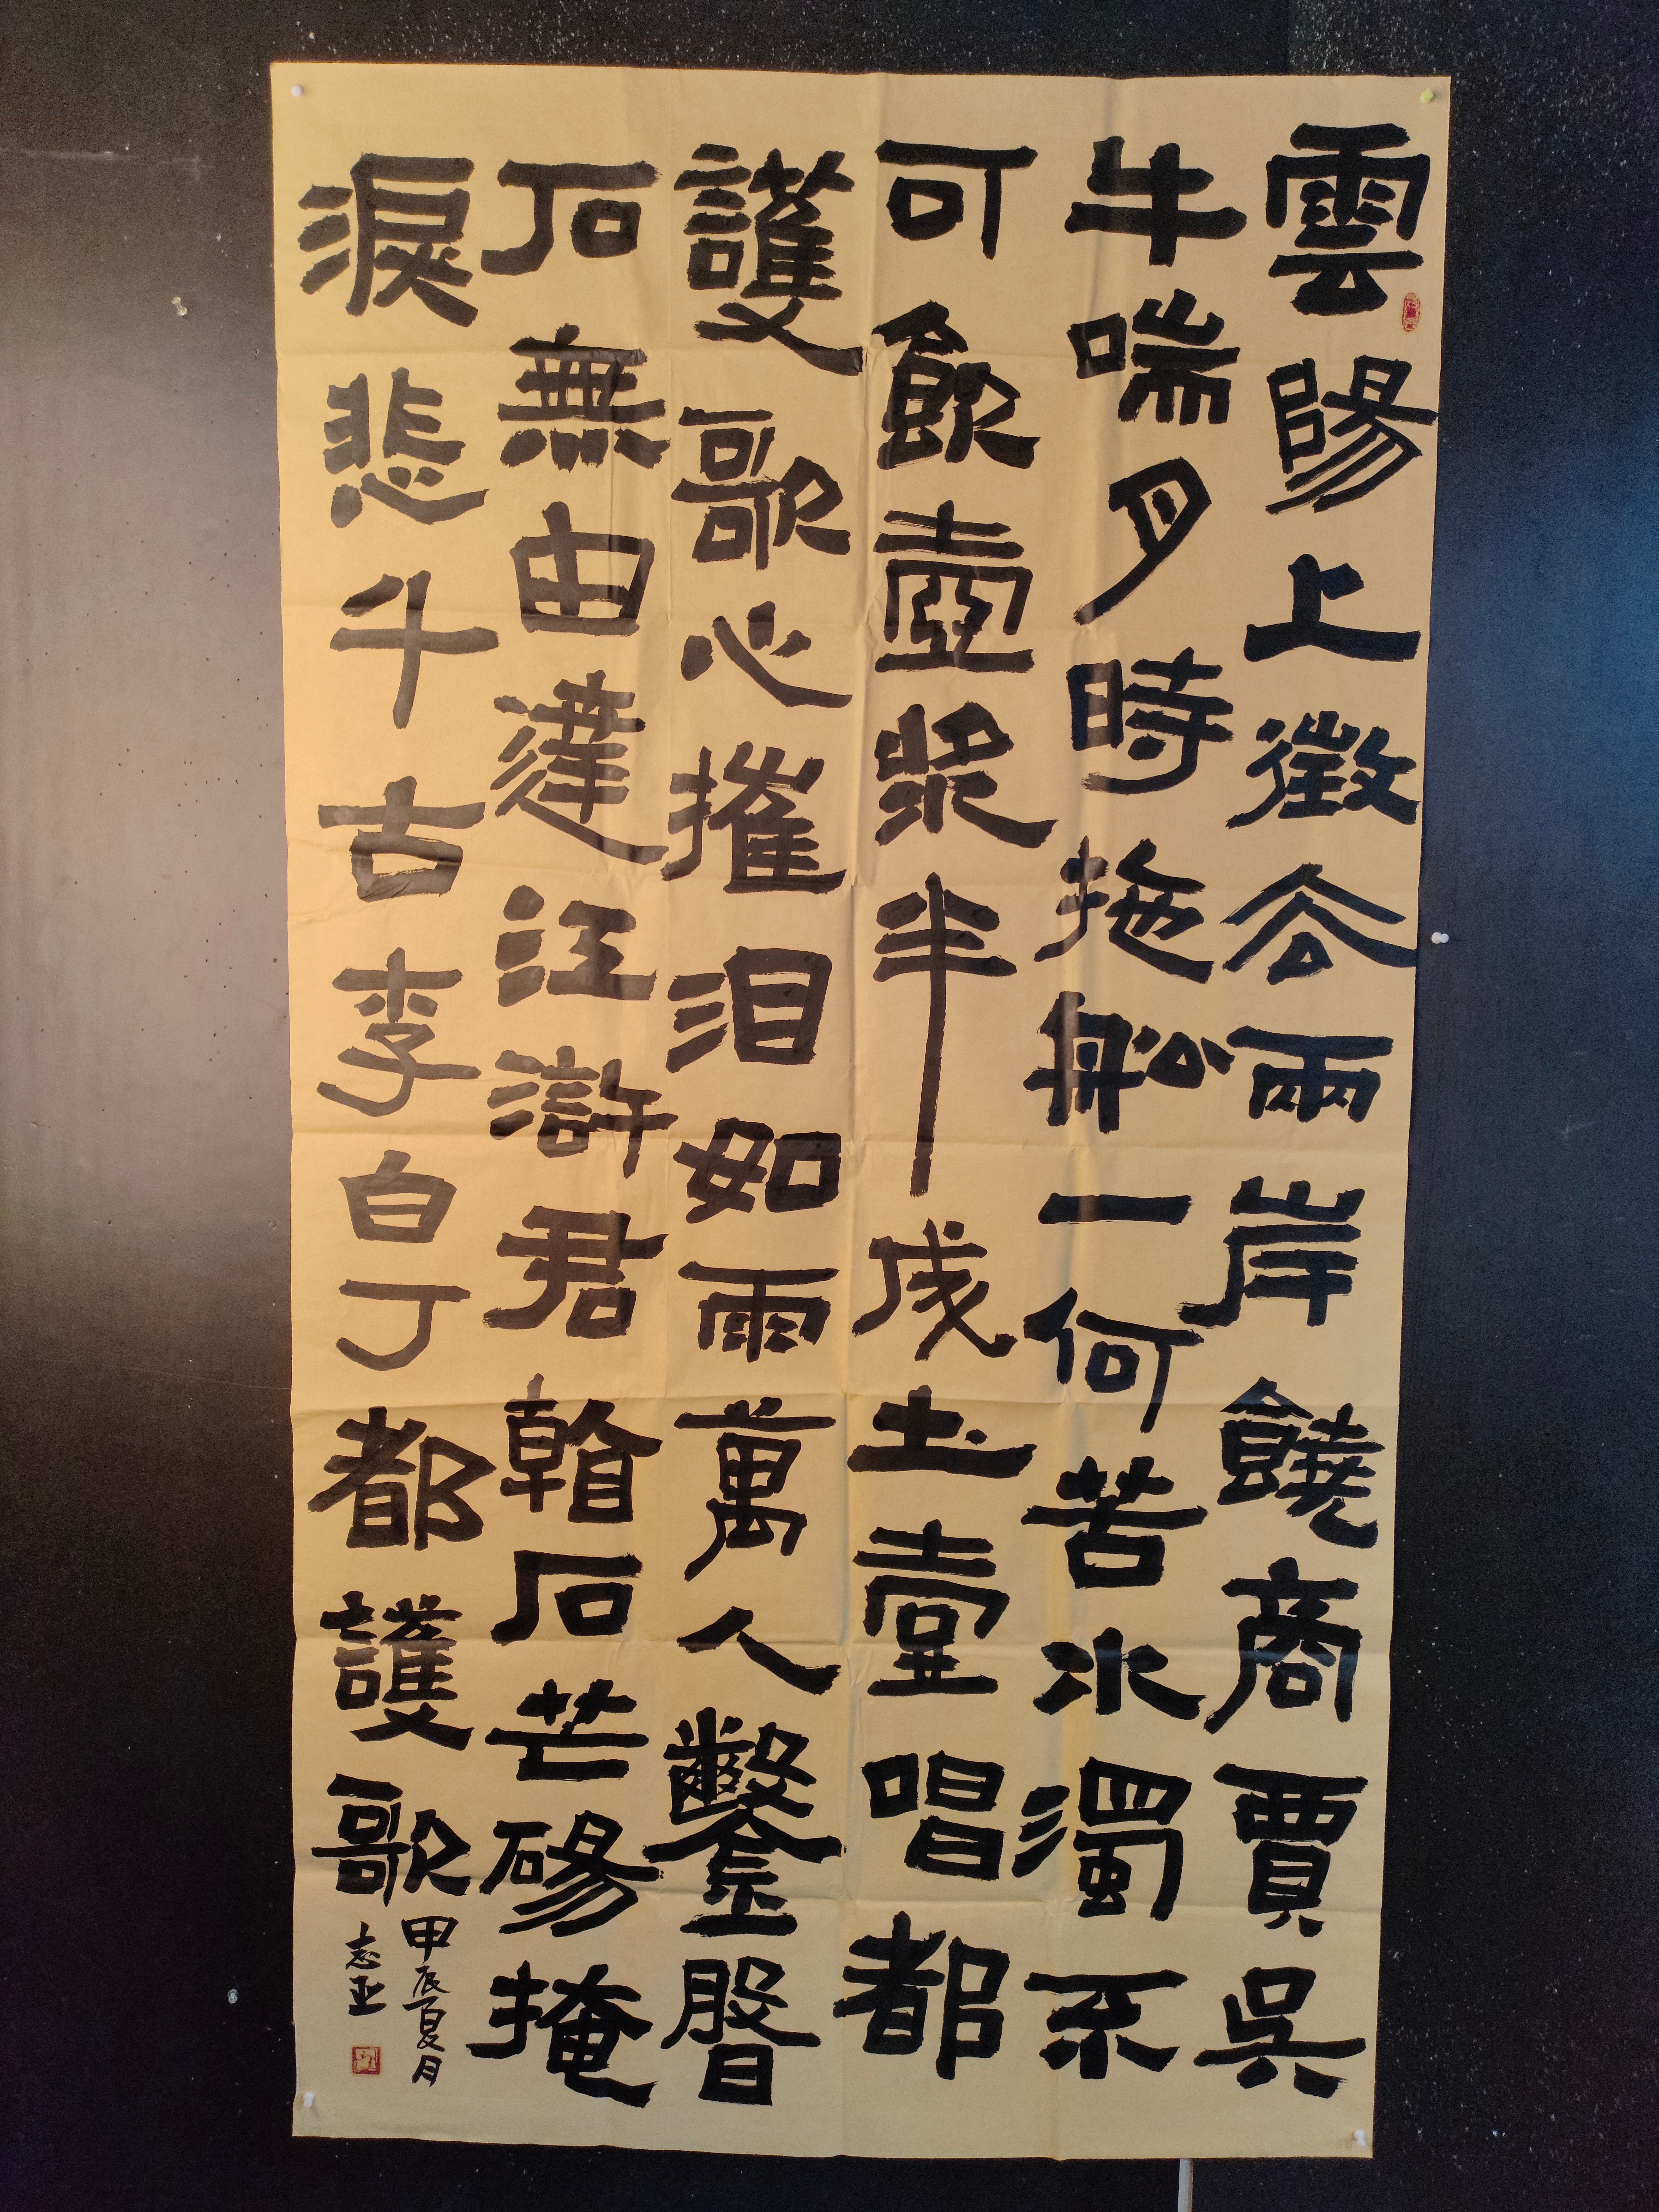 雲陽上徵去兩岸饒商賈吳
牛喘月時拖船一何苦水濁不
可飲壺漿半成土壹唱都
護歌心摧泪如雨萬人鑿盤
石無由達江滸君看石芒碭掩
淚悲千古李白丁都護歌
甲辰夏月
志亚